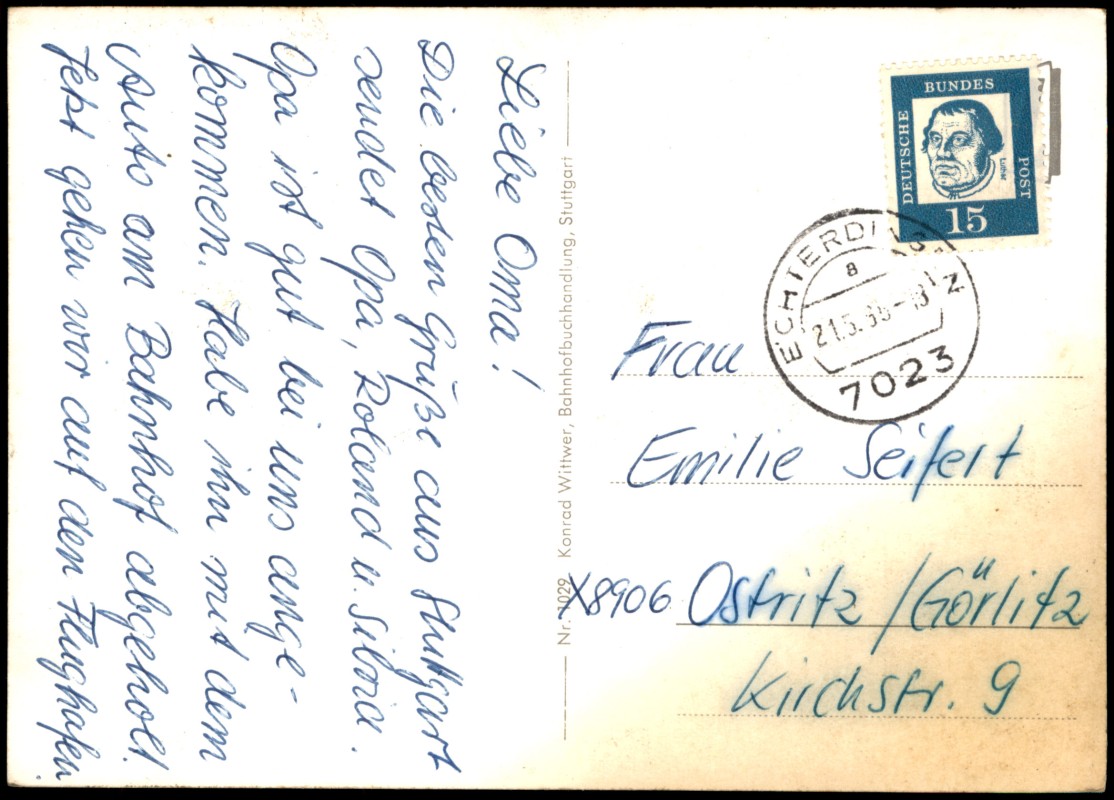 Liebe Oma!
Die besten Grüße aus Stuttgart
sendet Opa, Roland u. Silvia.
Opa ist gut bei uns ange-
kommen. Habe ihn mit dem
Auto am Bahnhof abgeholt.
Jetzt gehen wir auf den Flughafen.
Nr. 1029 Konrad Wittwer, Bahnhofbuchhandlung, Stuttgart
DEUTSCHE
BUNDES
POST
Luther
15
ECHTERDINGEN
a
21.5.
7023
Frau
Emilie Seifert
X8906 Ostritz/Görlitz
Kirchstr. 9